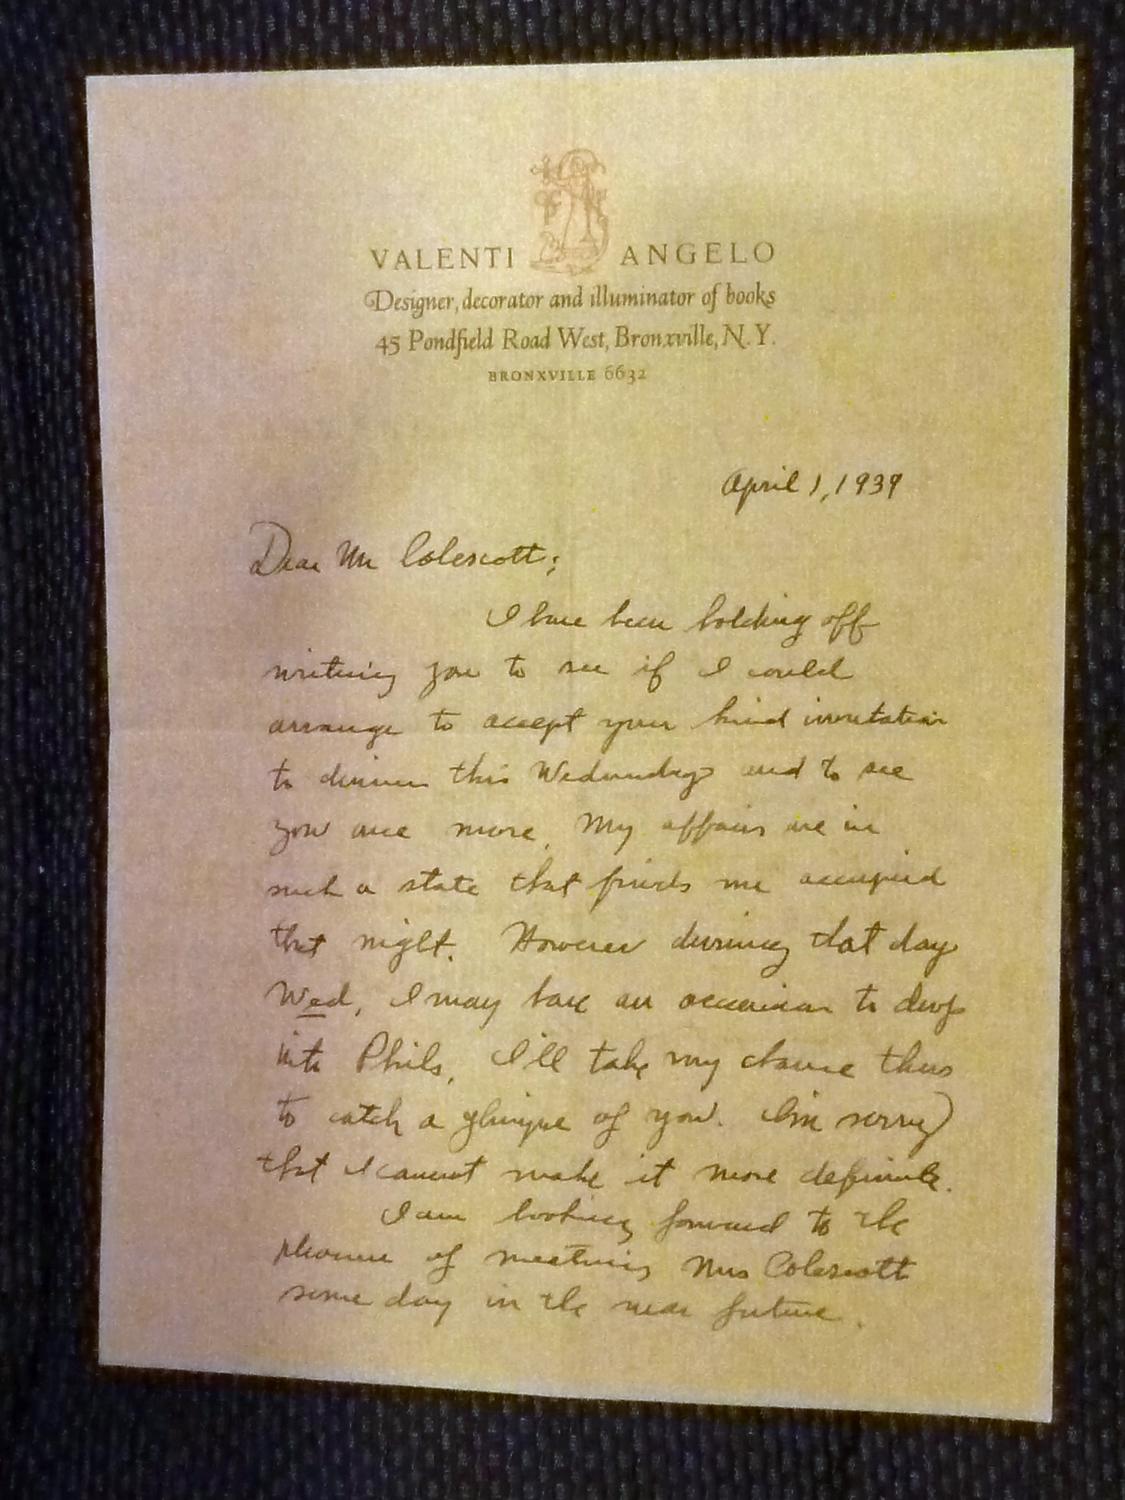 VALENTI ANGELO
Designer, decorator and illuminator of books
45 Pondfield Road West, Bronxville, N.Y.
BRONXVILLE 6632
April 1, 1939
Dear Mr Colescott;
I have been holding off
writing you to see if I could
arrange to accept your kind invitation
to dinner this Wednesday and to see
you once more. My affairs are in
such a state that finds me occupied
that night. However during that day
Wed, I may have an occasion to drop
into Phils, I'll take my chance then
to catch a glimpse of you. I'm sorry
that I cannot make it more definite.
I am looking forward to the
pleasure of meeting Mrs Colescott
some day in the near future.